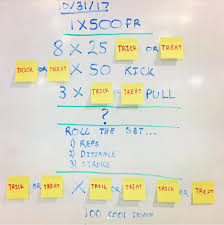 10/31/17
1X500 FR
8 X 25 TRICK OR TREAT
TRICK OR TREAT X 50 KICK
3 X TRICK OR TREAT PULL
?
ROLL THE SET...
1) REPS
2) DISTANCE
3) STROKE
TRICK OR TREAT X TRICK OR TREAT TRICK OR TREAT
100 COOL DOWN